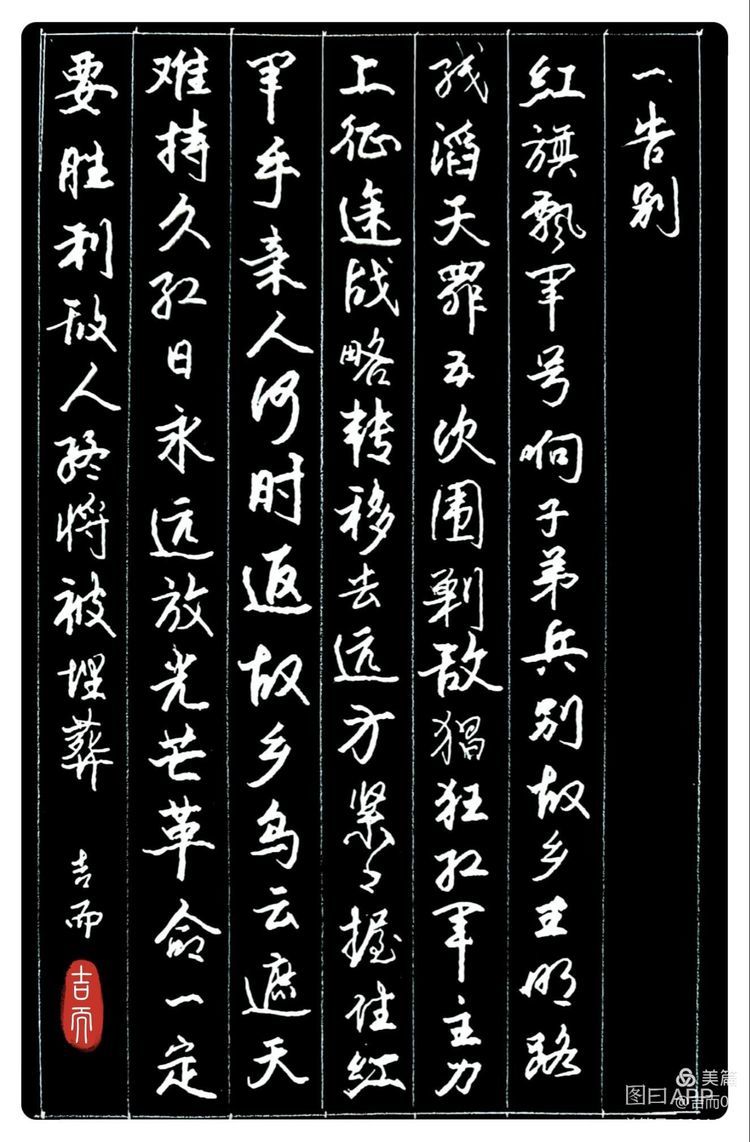 一、告别
红旗飘军号响子弟兵别故乡王明路
线滔天罪五次围剿敌猖狂红军主力
上征途战略转移去远方紧紧握住红
军手亲人何时返故乡乌云遮天
难持久红日永远放光芒革命一定
要胜利敌人终将被埋葬
吉而
吉而
美篇
图曰APP
@吉而0